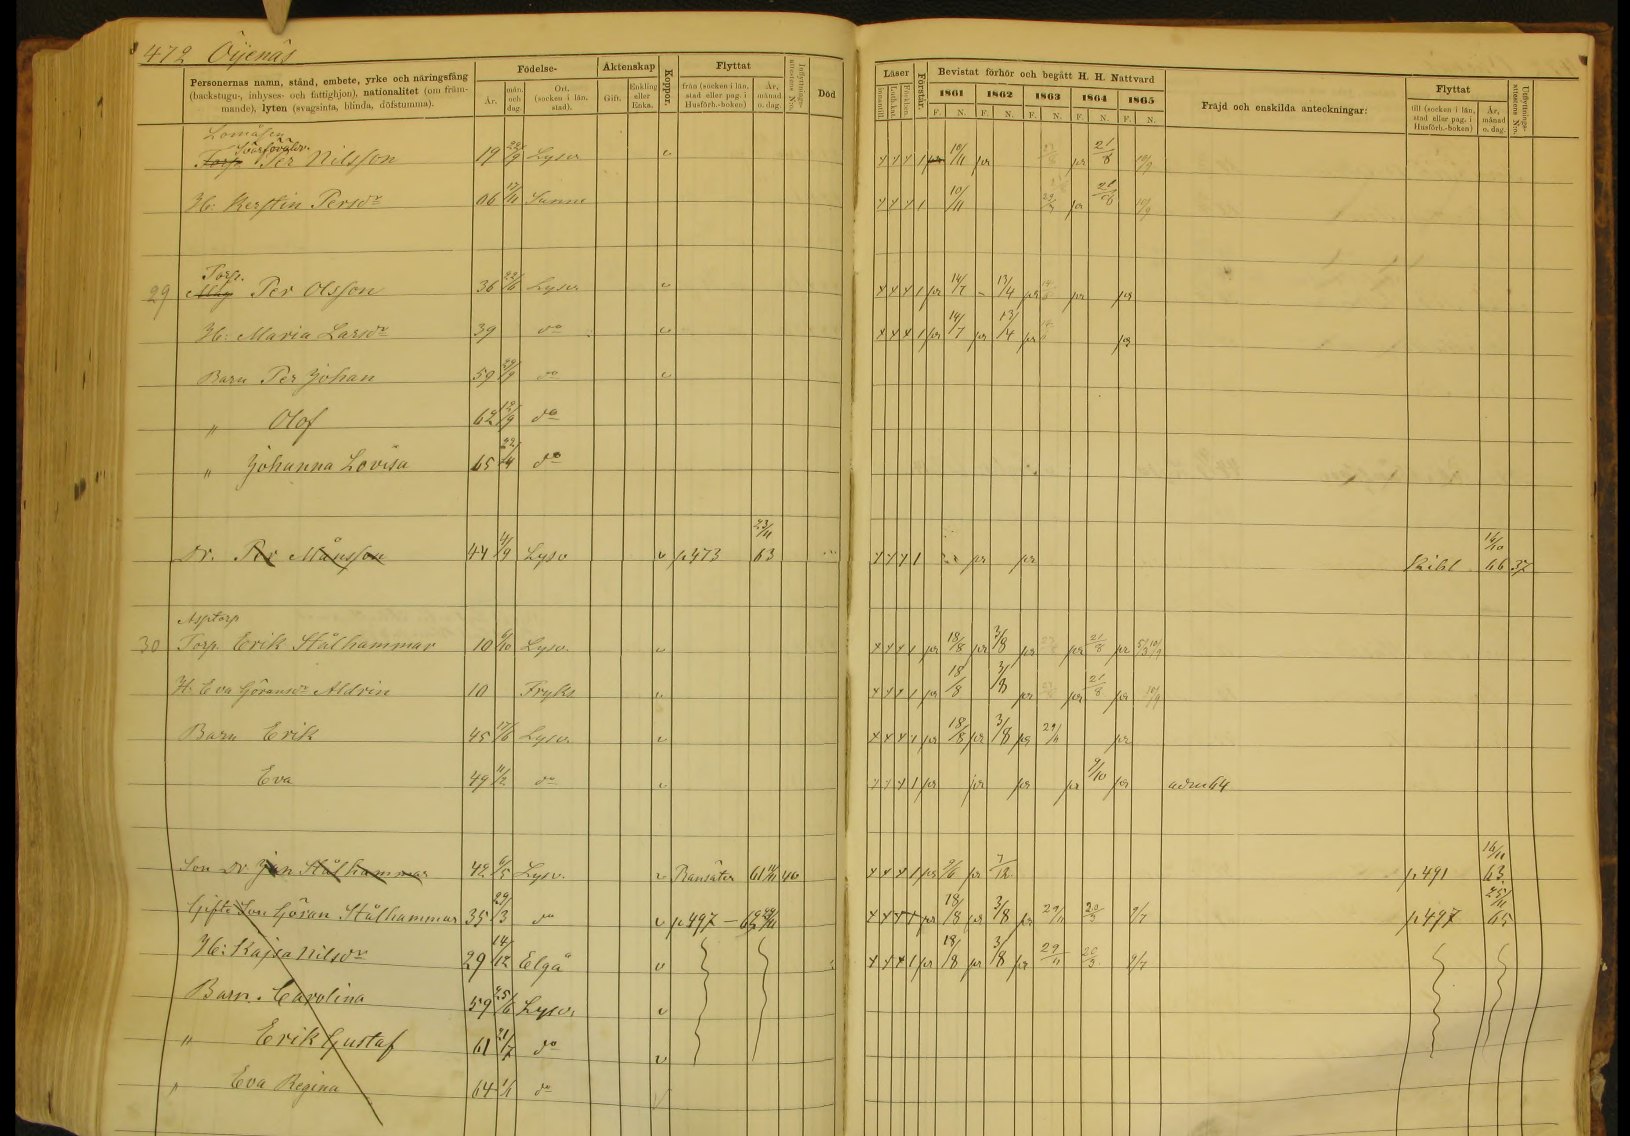 472 Öijenäs
Personernas namn, stånd, embete, yrke och näringsfång (backstugu-, inhyses- och fattighjon), nationalitet (om främmande), lyten (svagsinta, blinda, döfstumma).
Födelse-
År.
mån. och dag
Ort. (socken i län. stad).
Äktenskap
Gift.
Enkling eller Enka.
Koppor.
Flyttat
från (socken i län. stad eller pag. i Husförh.-boken)
År, månad o. dag.
Inflyttnings-attestens No.
Död
Läser
Innantill
Luth. kat.
Förstår.
Bevistat förhör och begått H. H. Nattvard
1861 1862 1863 1864 1865
F. N. F. N. F. N. F. N. F. N.
Fräjd och enskilda anteckningar:
Flyttat
till (socken i län, stad eller pag. i Husförh.-boken)
År, månad o. dag.
Utflyttnings-attestens No.
Lomåsen
Torp. Per Nilsson 19 22/9 Lysv. pr 10/11 pr pr 21/8 10/9
H: Kerstin Persdr 06 17/11 Sunne 10/11 pr 21/8 10/9
Torp.
29 Per Olsson 36 22/6 Lysv. pr 14/7 - 13/4 pr pr pr
H: Maria Larsdr 39 do pr 14/7 pr 13/4 pr pr
Barn Per Johan 59 29/9 do
" Olof 62 12/9 do
" Johanna Lovisa 65 22/4 do
Dr. Per Månsson 44 4/9 Lysv v p 473 23/11 63 pr pr Kihl 16/10 66 37
Asptorp
30 Torp. Erik Stålhammar 10 6/10 Lysv. pr 18/8 pr 3/8 pr pr 21/8 pr 10/9
H: Eva Göransdr Aldrin 10 Fryks pr 18/8 3/8 pr pr 21/8 pr 10/9
Barn Erik 45 17/6 Lysv. pr 18/8 pr 3/8 pr 29/11 pr
Eva 49 11/2 do pr pr pr pr 9/10 pr adm 64
Son Dr Jan Stålhammar 42 6/5 Lysv. v Ransäter 61 46 pr 9/6 pr 7/12 p 491 16/11 63
Gifte Son Göran Stålhammar 35 29/3 do v p 497 - pr 18/8 pr 3/8 pr 29/11 20/3 9/7 p 497 25/11 65
H: Kajsa Nilsdr 29 14/12 Elgå v pr 18/8 pr 3/8 pr 29/11 20/3 9/7
Barn. Carolina 59 25/6 Lysv. v
" Erik Gustaf 61 21/7 do v
" Eva Regina 64 1/1 do